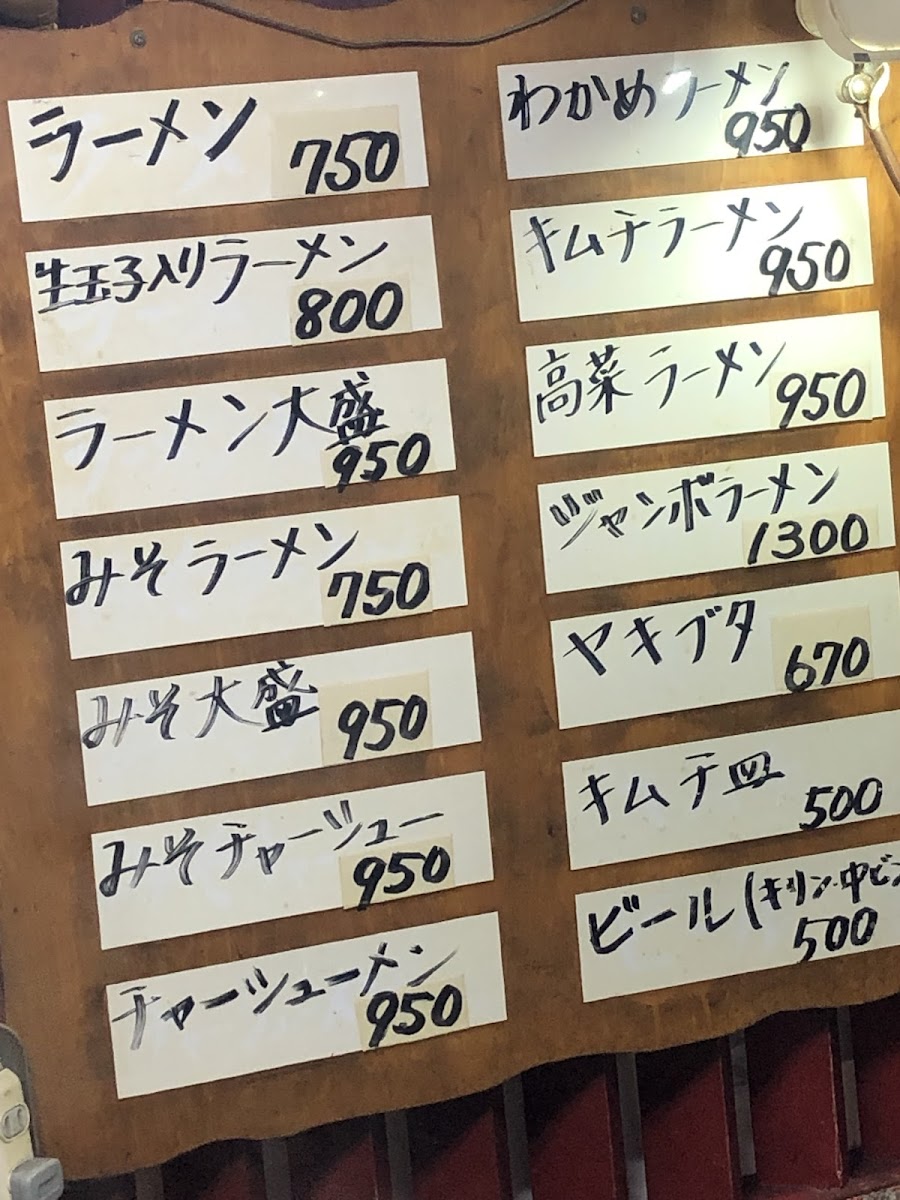 ラーメン
750
生玉子入りラーメン
800
ラーメン大盛
950
みそラーメン
750
みそ大盛
950
みそチャーシュー
950
チャーシューメン
950
わかめラーメン
950
キムチラーメン
950
高菜ラーメン
950
ジャンボラーメン
1300
ヤキブタ
670
キムチ皿
500
ビール(キリン・中ビン
500